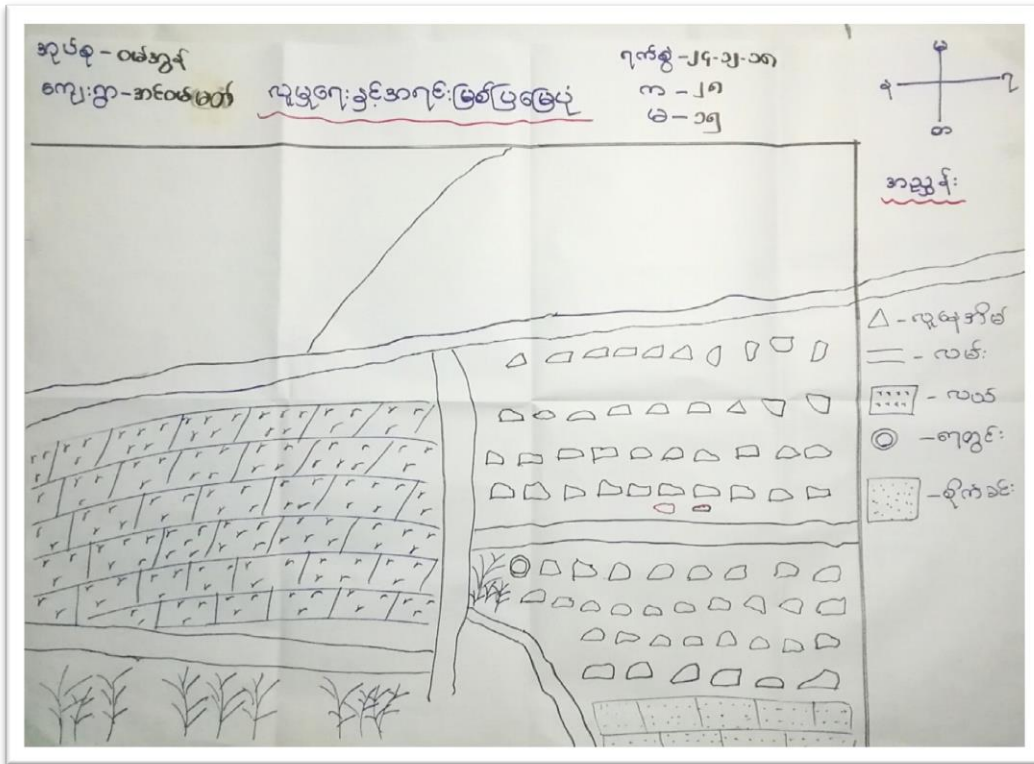 အုပ်စု - ဝမ်အွန်
ကျေးရွာ - အင်ဝမ်မြတ်
လူမှုရေးနှင့်အရင်းမြစ်ပြမြေပုံ
ရက်စွဲ - ၂၄-၁၂-၁၈
က - ၂၈
မ - ၁၅
မ
န
ရ
တ
အညွှန်း
- လူနေအိမ်
- လမ်း
- လယ်
- ရေတွင်း
- စိုက်ခင်း